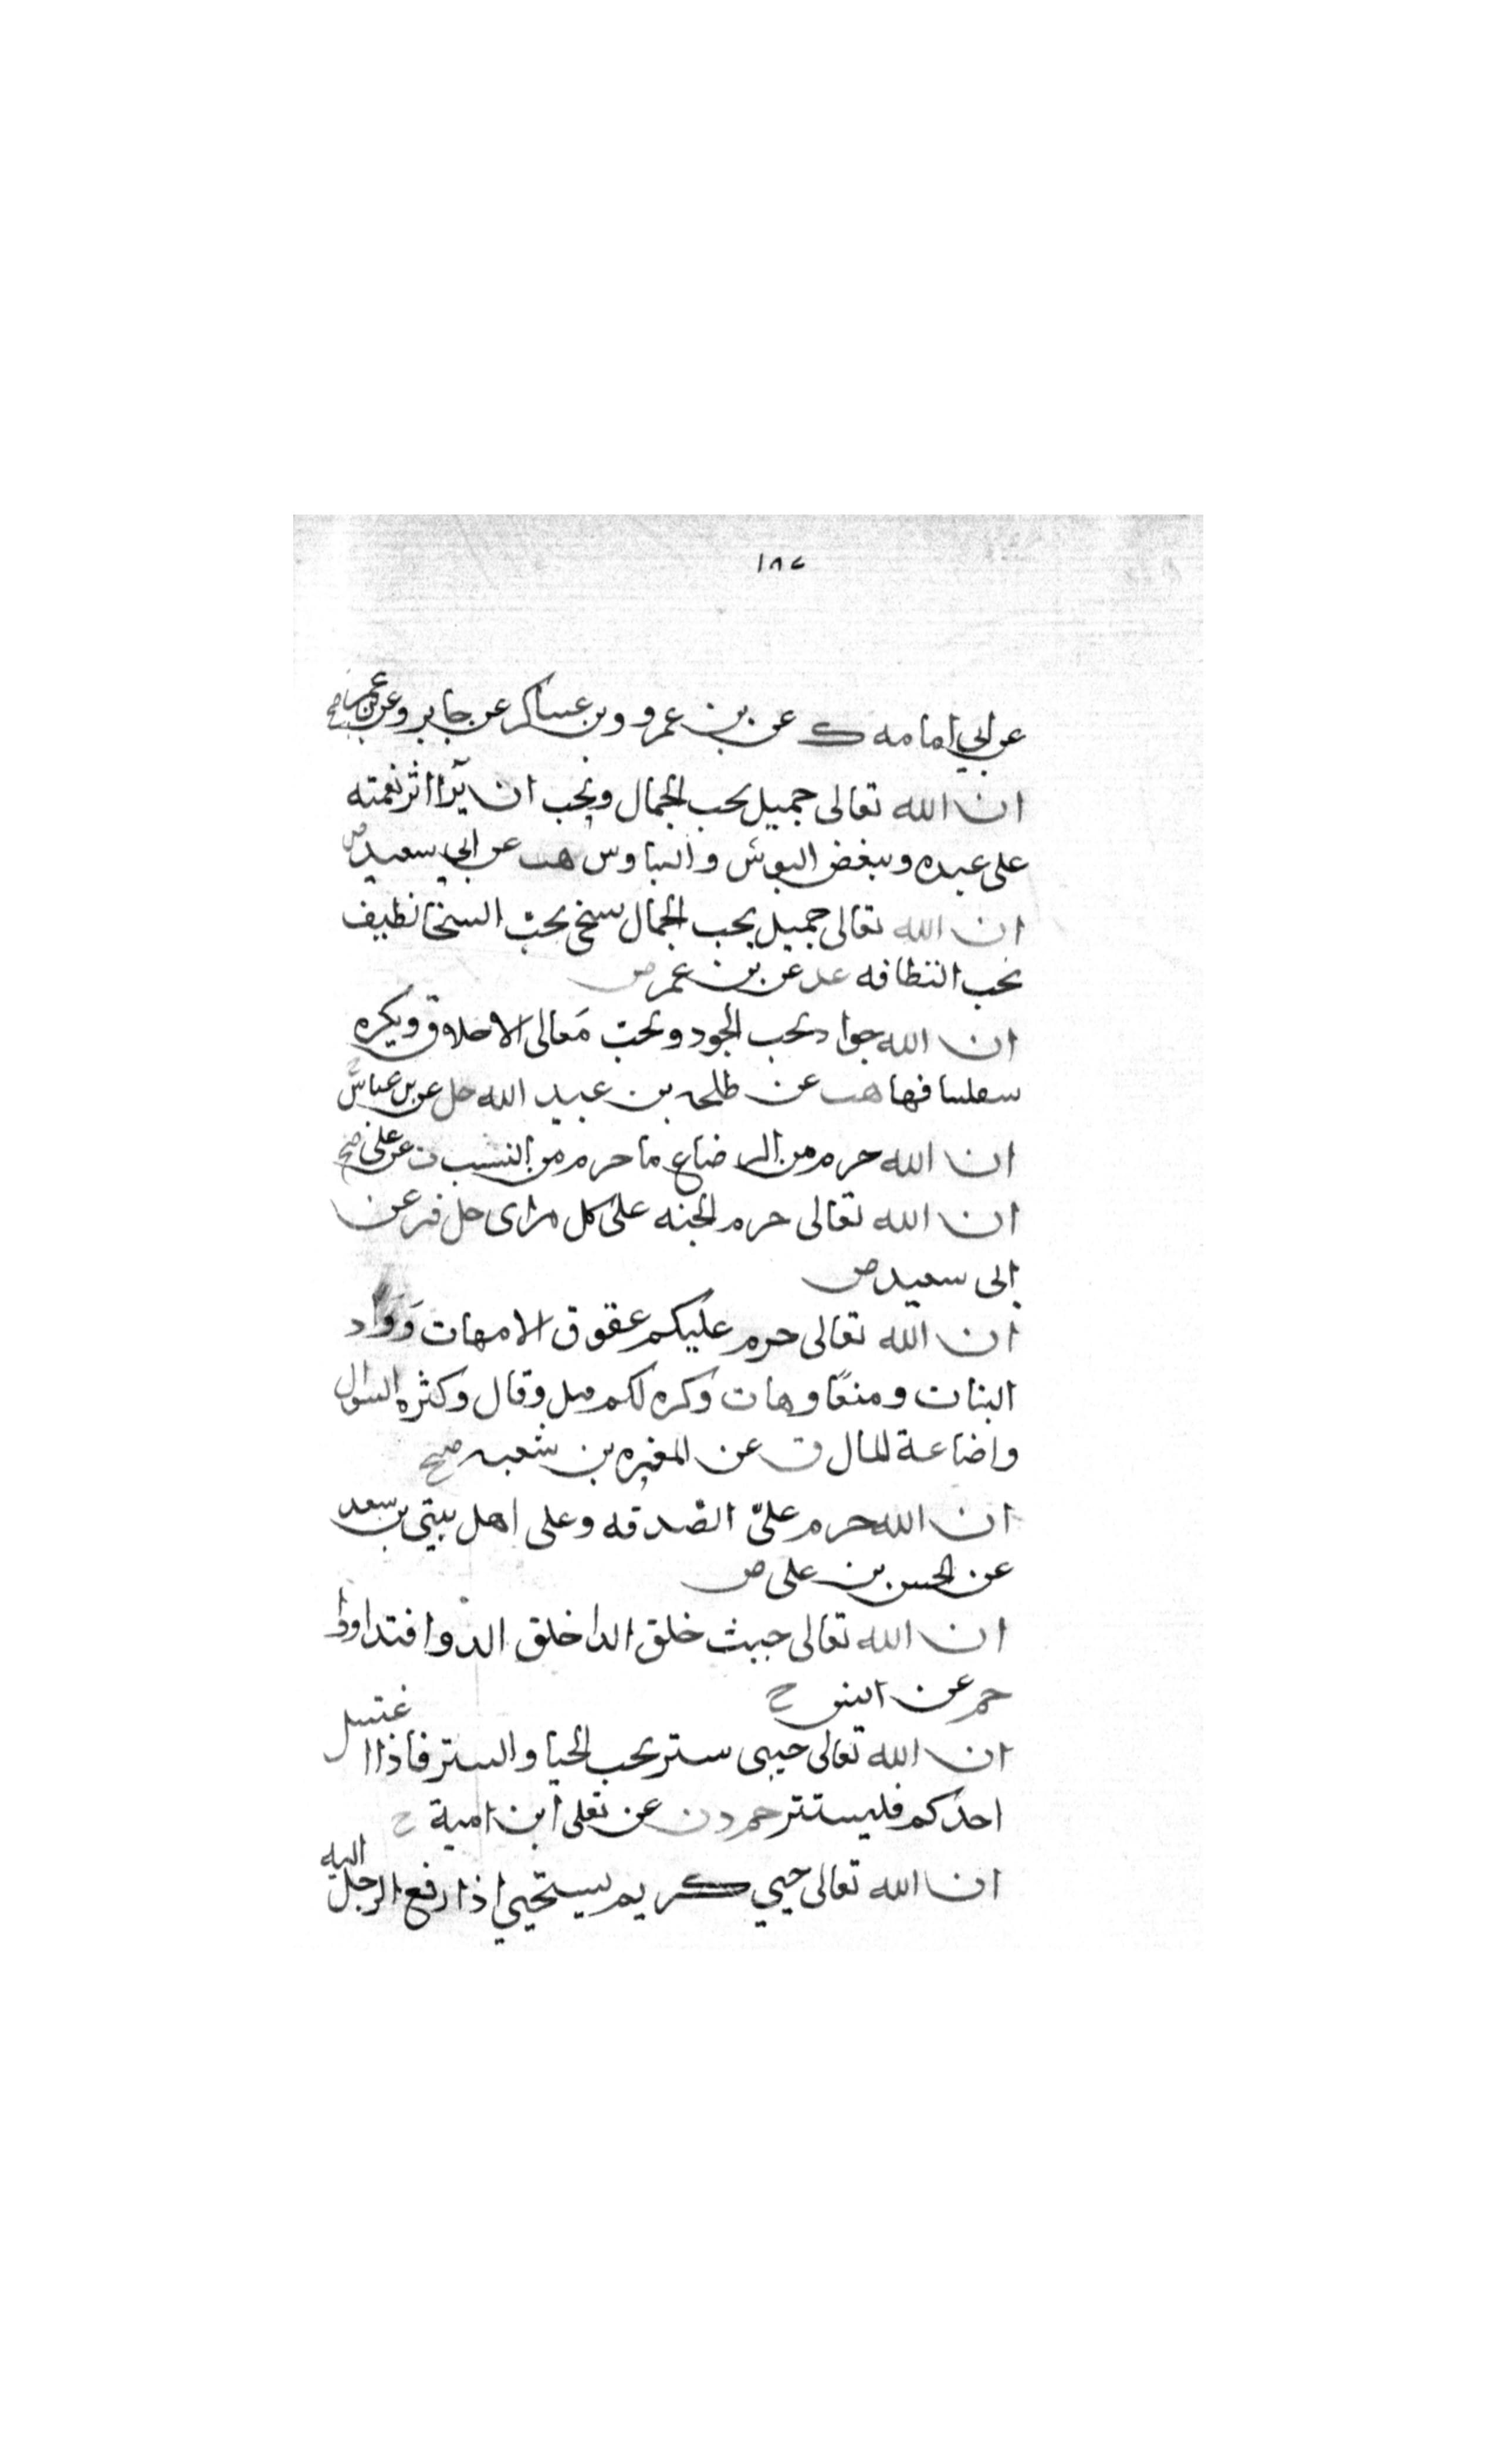 ١٨٢
عن ابي امامه ك عن بن عمرو وبن عساكر عن جابر وعن
ان الله تعالى جميل يحب الجمال ويحب ان يرا اثر نعمته
على عبده ويبغض البوس والتباوس هب عن ابي سعيد ض
ان الله تعالى جميل يحب الجمال سخى يحب السخا نظيف
يحب النظافه عد عن بن عمر ض
ان الله جواد يحب الجود ويحب معالى الاخلاق ويكره
سفسافها هب عن طلحه بن عبيد الله حل عن بن عباس
ان الله حرم من الرضاع ما حرم من النسب ت عن على صح
ان الله تعالى حرم الجنه على كل مراى حل فر عن
ابى سعيد ض
ان الله تعالى حرم عليكم عقوق الامهات وواد
البنات ومنعا وهات وكره لكم قيل وقال وكثره السوال
واضاعة المال ق عن المغيره بن شعبه صح
ان الله حرم علىّ الصدقه وعلى اهل بيتى بن سعد
عن الحسن بن على ض
ان الله تعالى حيث خلق الدا خلق الدوا فتداووا
حم عن انس ح
ان الله تعالى حيى ستر يحب الحيا والستر فاذا اغتسل
احدكم فليستتر حم د ن عن يعلى ابن امية ح
ان الله تعالى حيي كريم يستحيي اذا رفع الرجل اليه